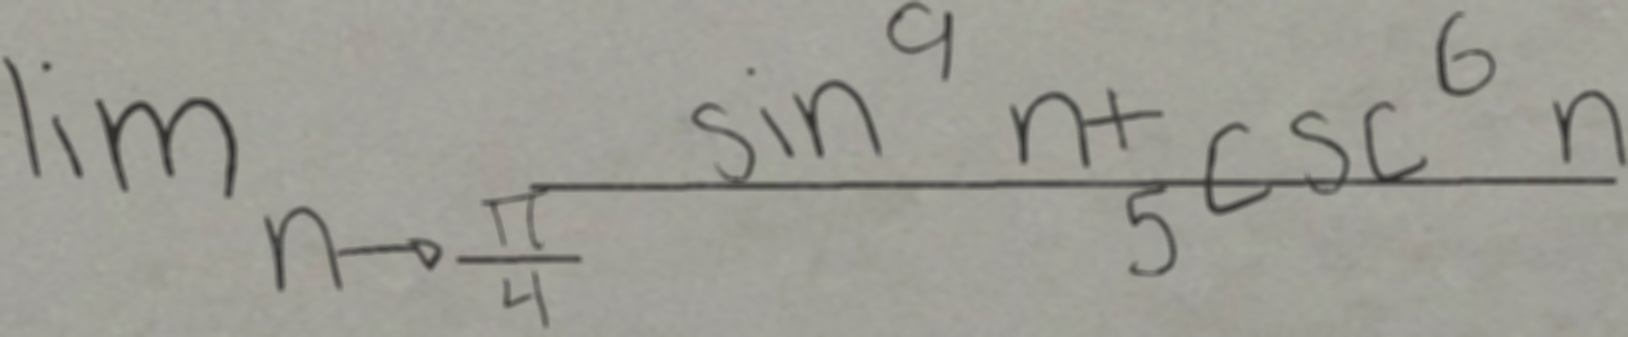 \lim_{n \to \frac{\pi}{4}} \frac{\sin^9 n + \csc^6 n}{5}